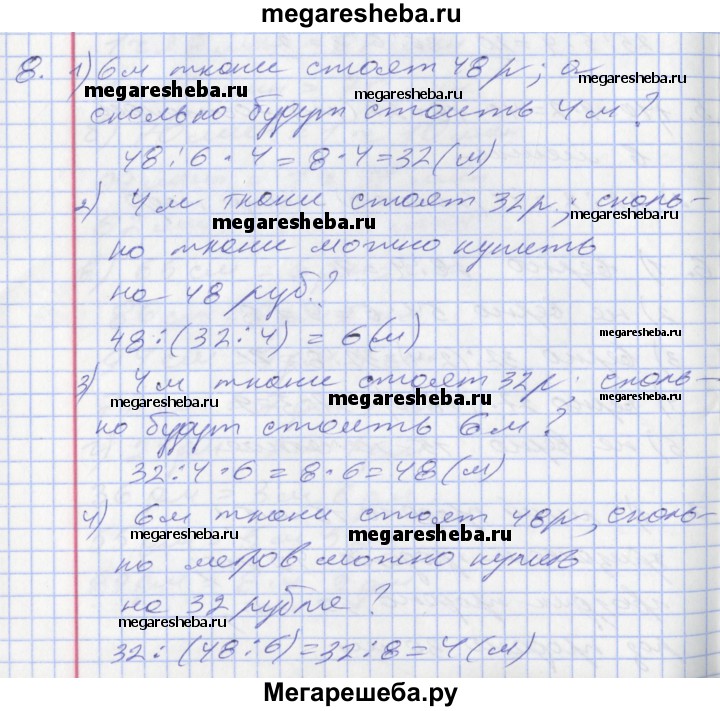 megaresheba.ru
8. 1) 6м ткани стоят 48 р; а
megaresheba.ru
megaresheba.ru
сколько будут стоить 4 м?
48:6·4=8·4=32(м)
2) 4 м ткани стоят 32р; сколь-
megaresheba.ru
megaresheba.ru
ко ткани можно купить
на 48 руб.?
48:(32:4) = 6(м)
megaresheba.ru
3) 4 м ткани стоят 32р; сколь-
megaresheba.ru
megaresheba.ru
megaresheba.ru
ко будут стоить 6 м?
32:4·6=8·6=48(м)
4) 6м ткани стоят 48р, сколь-
megaresheba.ru
megaresheba.ru
ко метров можно купить
на 32 рубля?
megaresheba.ru
32:(48:6)=32:8=4(м)
megaresheba.ru
Мегарешеба.ру